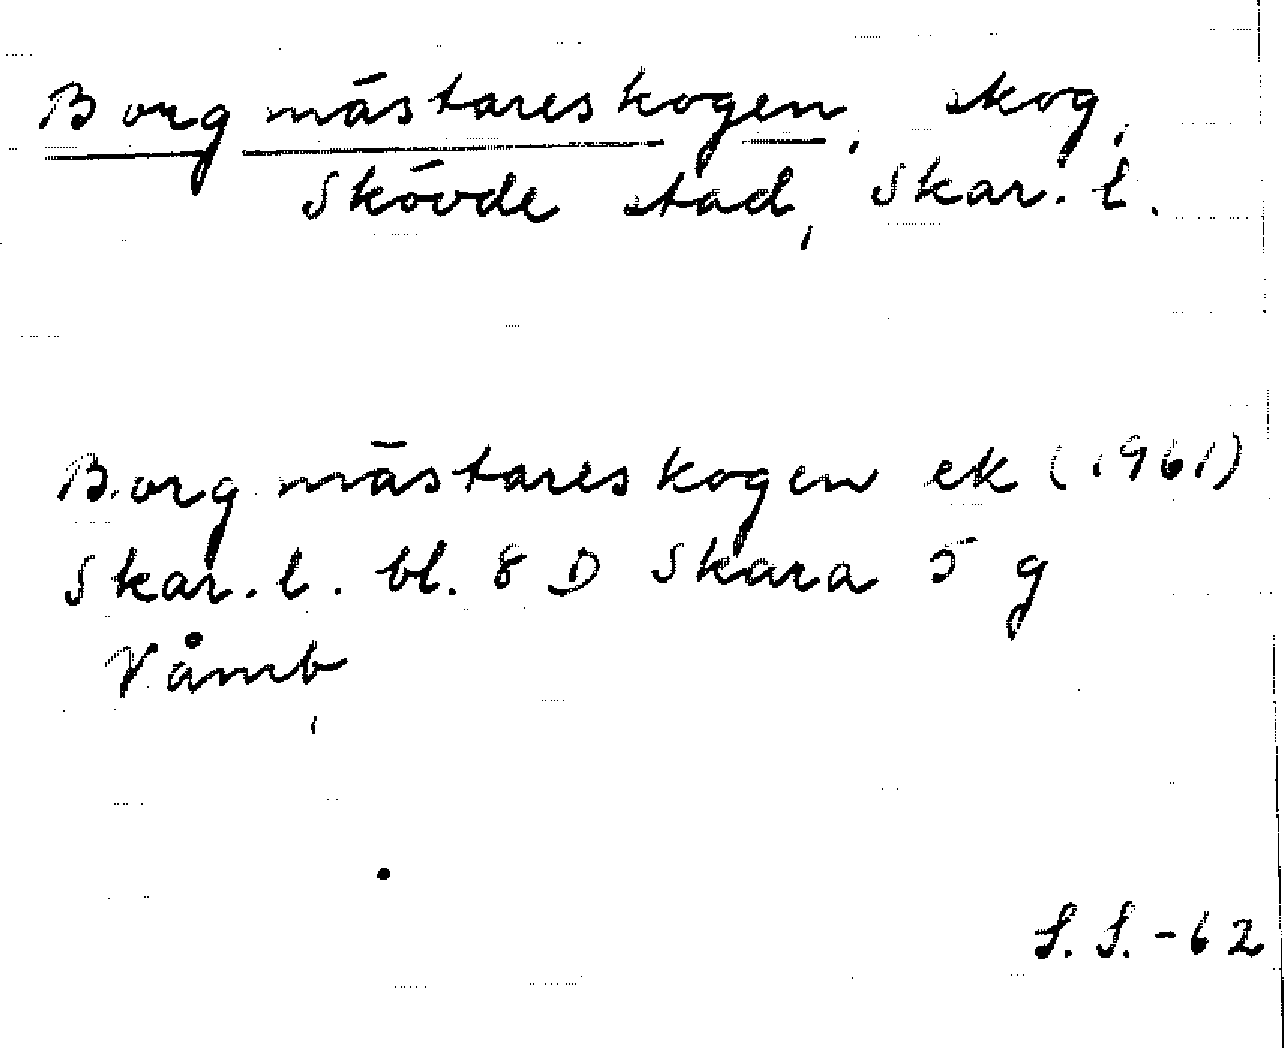 Borgmästareskogen, skog,
Skövde stad, Skar. l.
Borgmästareskogen ek (1961)
Skar. l. bl. 8 D Skara 5 g
Våmb
S. S. -62